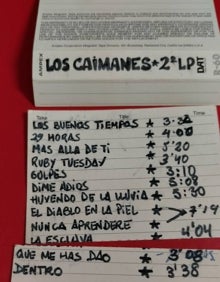 AMPEX
LOS CAIMANES * 2º LP
DAT
R-60
LOS BUENOS TIEMPOS * 3'32
29 HORAS * 4'00
MAS ALLA DE TI * 5'20
RUBY TUESDAY * 3'40
GOLPES * 3'10
DIME ADIOS * 5'08
HUYENDO DE LA LLUVIA * 5'30
EL DIABLO EN LA PIEL * > 7'14
NUNCA APRENDERE *
LA ESCLAVA * 4'04
QUE ME HAS DAO * 3'08
DENTRO * 3'38